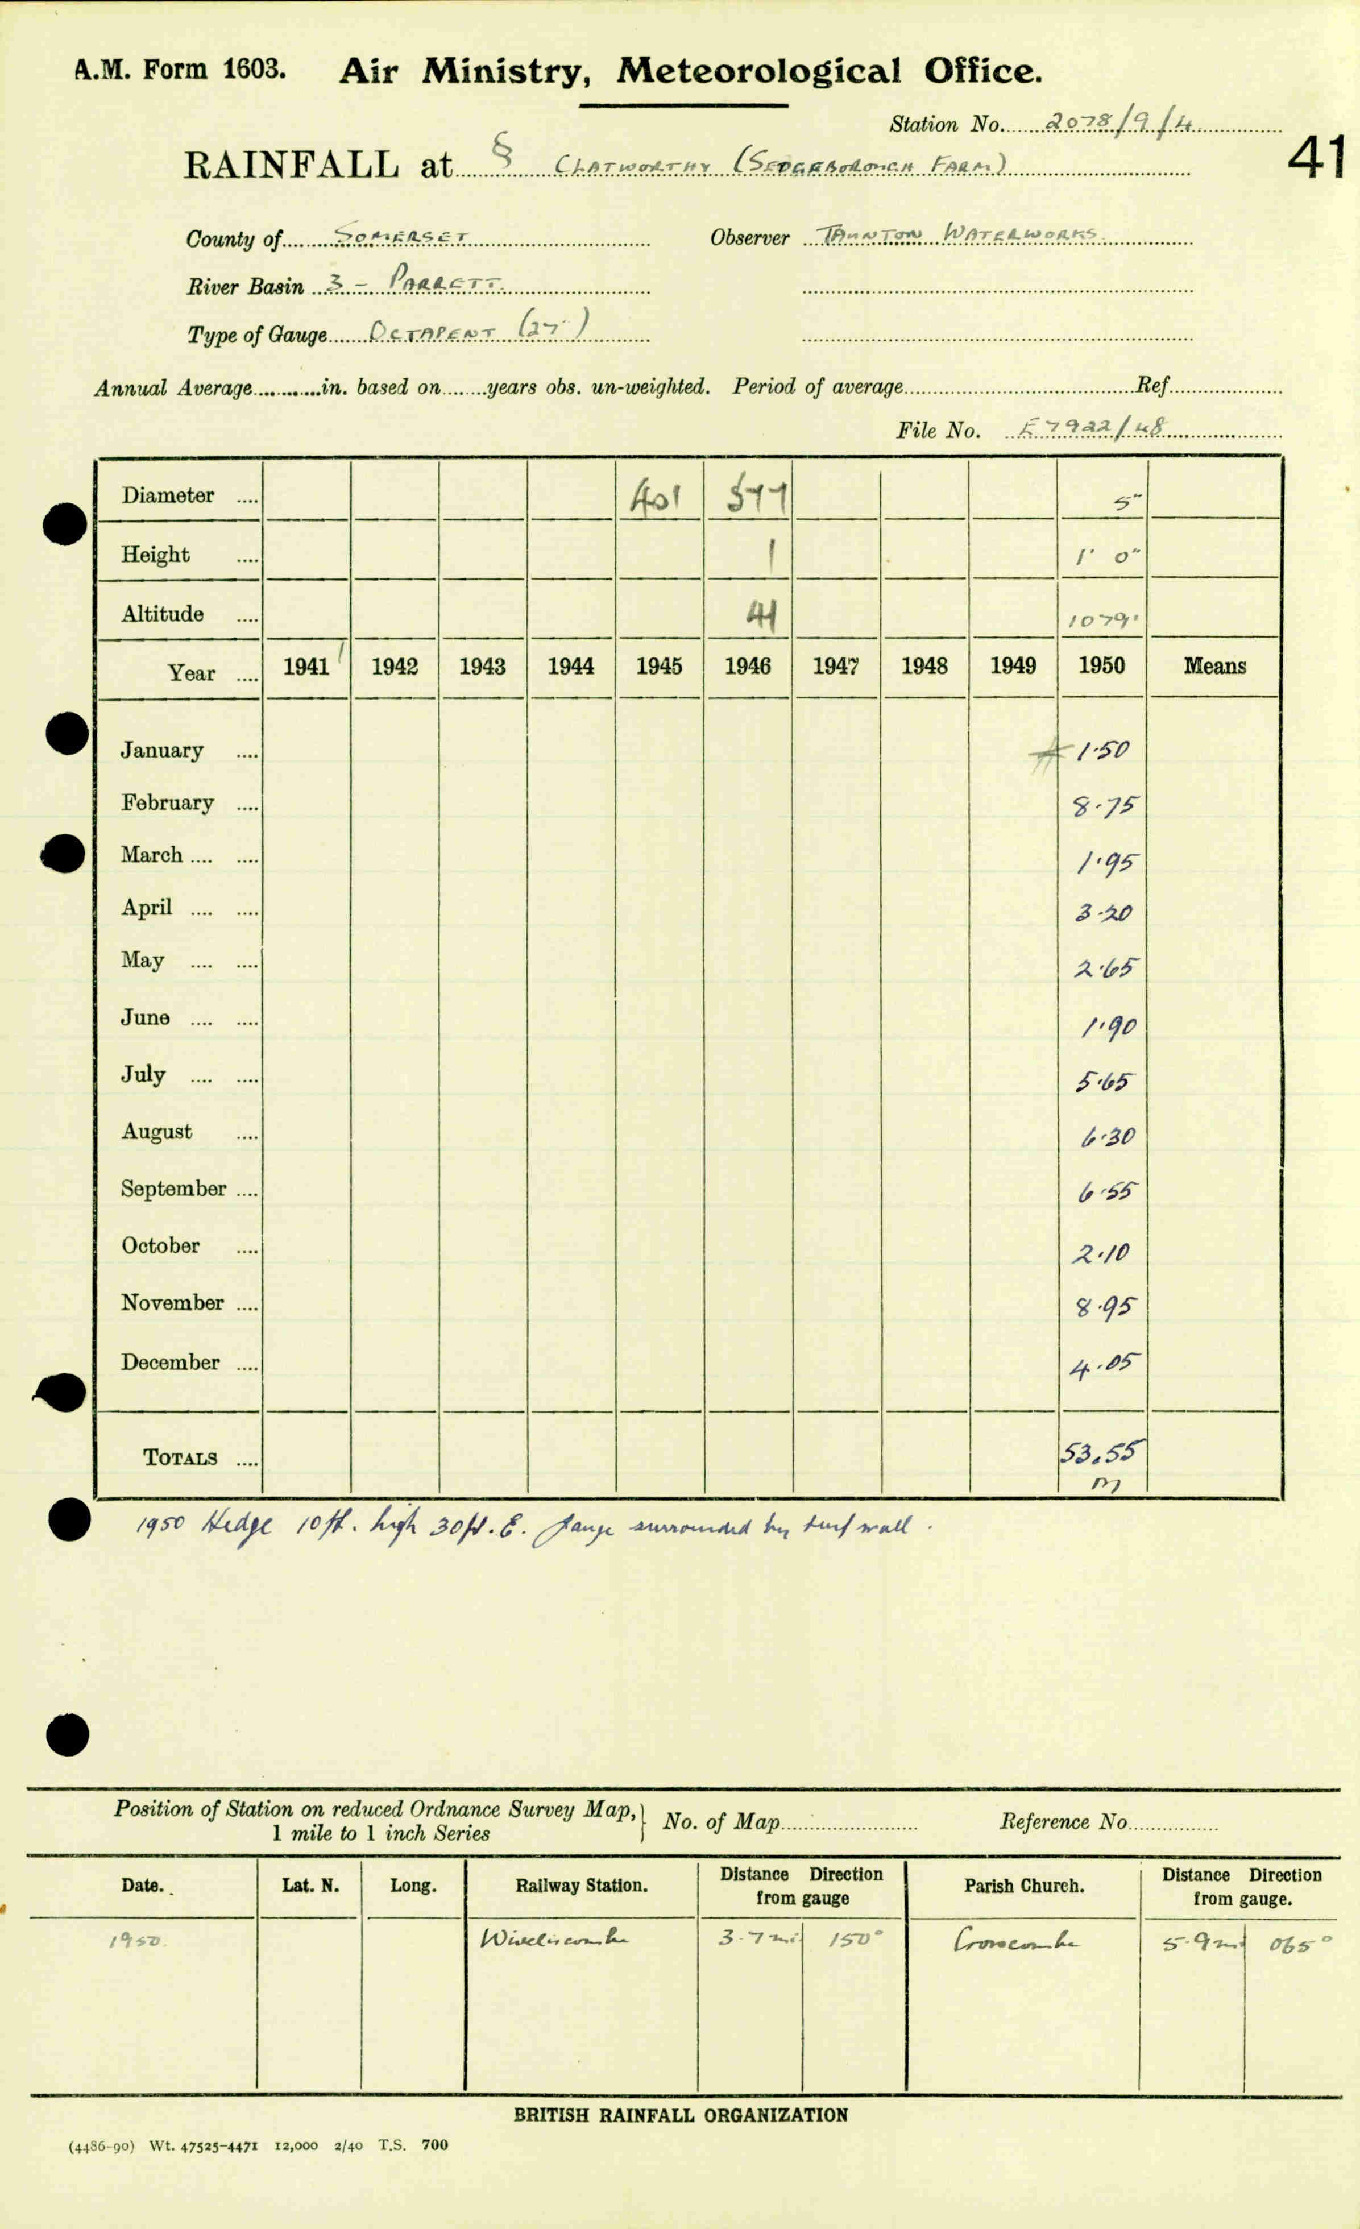 A.M. Form 1603. Air Ministry, Meteorological Office.
Station No. 2078/9/4
41
RAINFALL at § CLATWORTHY (SEDGEBOROUGH FARM)
County of SOMERSET Observer TAUNTON WATERWORKS.
River Basin 3 - PARRETT.
Type of Gauge OCTAPENT (27")
Annual Average in. based on years obs. un-weighted. Period of average Ref
File No. E7922/48
Diameter 401 577 5"
Height 1 1' 0"
Altitude 41 1079'
Year 1941 1942 1943 1944 1945 1946 1947 1948 1949 1950 Means
January 1.50
February 8.75
March 1.95
April 3.20
May 2.65
June 1.90
July 5.65
August 6.30
September 6.55
October 2.10
November 8.95
December 4.05
TOTALS 53.55
m
1950 Hedge 10ft. high 30ft. E. Gauge surrounded by turf wall.
Position of Station on reduced Ordnance Survey Map,
1 mile to 1 inch Series } No. of Map Reference No.
Date. Lat. N. Long. Railway Station. Distance Direction from gauge Parish Church. Distance Direction from gauge.
1950. Wiveliscombe 3.7 mi 150° Crowcombe 5.9 mi 065°
BRITISH RAINFALL ORGANIZATION
(4486-90) Wt. 47525-4471 12,000 2/40 T.S. 700